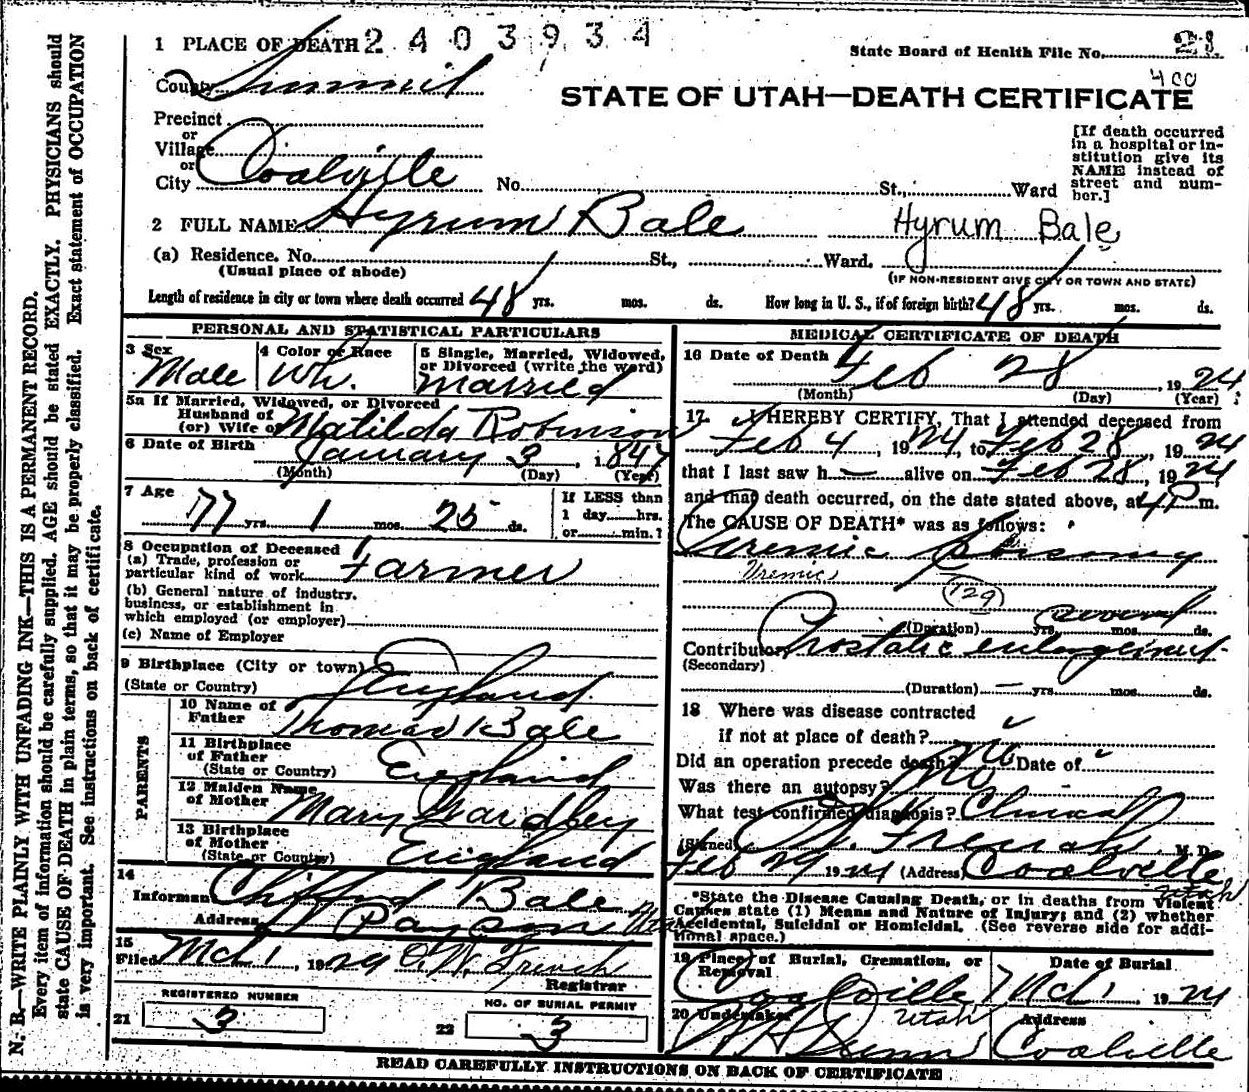 1 PLACE OF DEATH 2403934
State Board of Health File No. 28
400
County Summit
STATE OF UTAH—DEATH CERTIFICATE
Precinct
or
Village
or
City Coalville No. St., Ward
[If death occurred
in a hospital or in-
stitution give its
NAME instead of
street and num-
ber.]
2 FULL NAME Hyrum Bale Hyrum Bale
(a) Residence. No. St., Ward,
(Usual place of abode)
(IF NON-RESIDENT GIVE CITY OR TOWN AND STATE)
Length of residence in city or town where death occurred 48 yrs. mos. ds. How long in U. S., if of foreign birth? 48 yrs. mos. ds.
PERSONAL AND STATISTICAL PARTICULARS
3 Sex
Male
4 Color or Race
Wh.
5 Single, Married, Widowed,
or Divorced (write the word)
Married
5a If Married, Widowed, or Divorced
Husband of
(or) Wife of Matilda Robinson
6 Date of Birth January 3, 1847
(Month) (Day) (Year)
7 Age
77 yrs. 1 mos. 25 ds.
If LESS than
1 day hrs.
or min.?
8 Occupation of Deceased
(a) Trade, profession or
particular kind of work Farmer
(b) General nature of industry,
business, or establishment in
which employed (or employer)
(c) Name of Employer
9 Birthplace (City or town)
(State or Country) England
PARENTS
10 Name of
Father Thomas Bale
11 Birthplace
of Father
(State or Country) England
12 Maiden Name
of Mother Mary Yardley
13 Birthplace
of Mother
(State or Country) England
14
Informant Clifford Bale
Address Payson Utah
15
Filed Mch 1, 1924 O. W. French
Registrar
REGISTERED NUMBER
21 3
NO. OF BURIAL PERMIT
22 3
MEDICAL CERTIFICATE OF DEATH
16 Date of Death Feb 28, 1924
(Month) (Day) (Year)
17 I HEREBY CERTIFY, That I attended deceased from
Feb 4, 1924, to Feb 28, 1924
that I last saw h— alive on Feb 28, 1924
and that death occurred, on the date stated above, at 4 P m.
The CAUSE OF DEATH* was as follows:
Uremic Poisoning
Uremic
129
several
(Duration) yrs. mos. ds.
Contributory Prostatic enlargement.
(Secondary)
(Duration) — yrs. mos. ds.
18 Where was disease contracted
if not at place of death?
Did an operation precede death? No Date of
Was there an autopsy? No
What test confirmed diagnosis? Clinical
(Signed) M. D.
Feb 29 1924 (Address) Coalville
Utah
*State the Disease Causing Death, or in deaths from Violent
Causes state (1) Means and Nature of Injury; and (2) whether
Accidental, Suicidal or Homicidal. (See reverse side for addi-
tional space.)
19 Place of Burial, Cremation, or
Removal
Coalville
Utah
Date of Burial
Mch 1, 1924
20 Undertaker
Dunn
Address
Coalville
READ CAREFULLY INSTRUCTIONS ON BACK OF CERTIFICATE
N. B.—WRITE PLAINLY WITH UNFADING INK—THIS IS A PERMANENT RECORD.
Every item of information should be carefully supplied. AGE should be stated EXACTLY. PHYSICIANS should
state CAUSE OF DEATH in plain terms, so that it may be properly classified. Exact statement of OCCUPATION
is very important. See instructions on back of certificate.